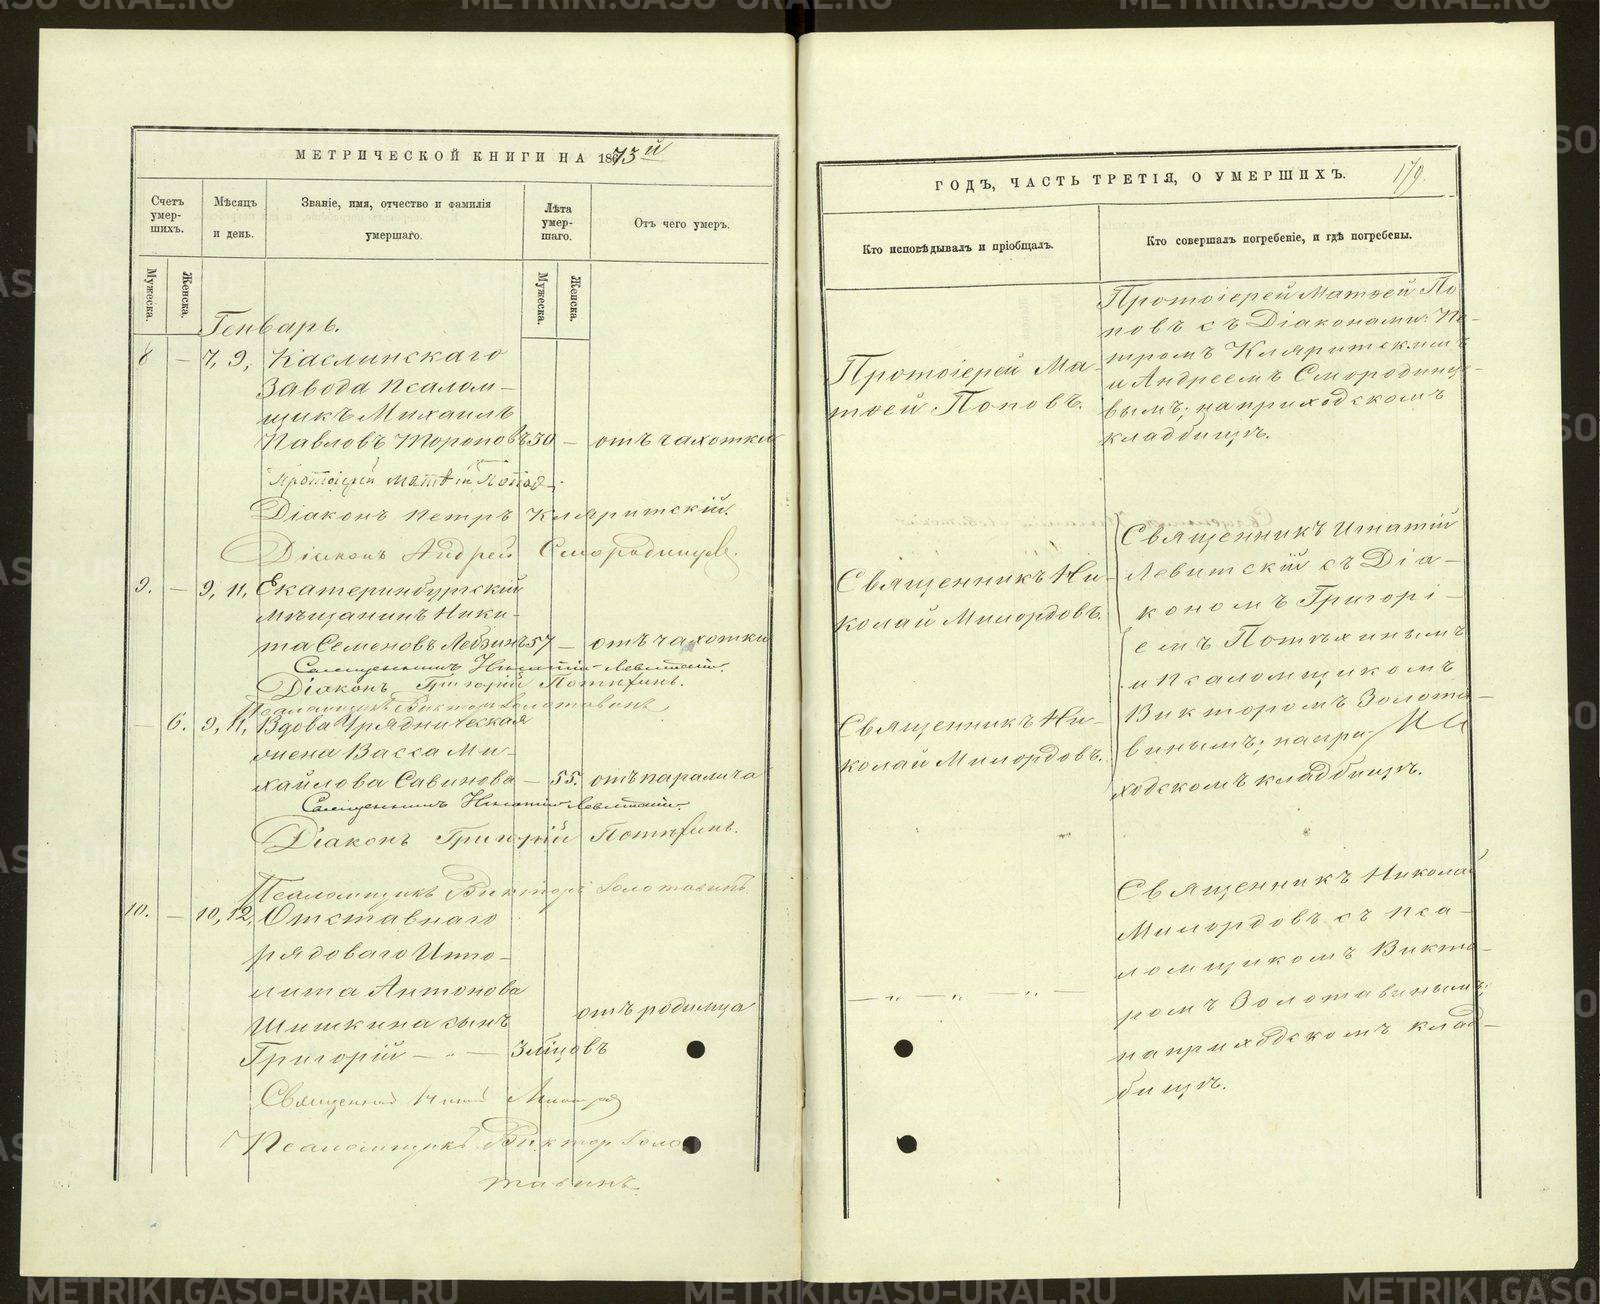 МЕТРИЧЕСКОЙ КНИГИ НА 1873й
Счетъ умер-шихъ.
Мѣсяцъ и день.
Званіе, имя, отчество и фамилія умершаго.
Лѣта умер-шаго.
Отъ чего умеръ.
Мужеска.
Женска.
Мужеска.
Женска.
Генварь.
8 — 7, 9, Каслинскаго
Завода Псалом-
щикъ Михаилъ
Павловъ Тороповъ 50 — отъ чахотки
Протоіерей Матѳей Поповъ
Діаконъ Петръ Кляритскій.
Діаконъ Андрей Смородинцев.
9. — 9, 11, Екатеринбургскій
мѣщанинъ Ники-
та Семеновъ Лебзинъ 57 — отъ чахотки
Священникъ Игнатій Левитскій.
Діаконъ Григорій Потѣхинъ.
Псаломщикъ Викторъ Золотавинъ
— 6. 9, 11, Вдова Урядническая
жена Васса Ми-
хайлова Савинова — 55. отъ паралича
Священникъ Игнатій Левитскій.
Діаконъ Григорій Потѣхинъ.
Псаломщикъ Викторъ Золотавинъ
10. — 10, 12, Отставнаго
рядоваго Иппо-
лита Антонова
Шишкина сынъ отъ родимца
Григорій — „ — 3 мѣ́сцовъ
Священникъ Милордов
Псаломщикъ Виктор Золо
тавинъ.
ГОДЪ, ЧАСТЬ ТРЕТІЯ, О УМЕРШИХЪ. 179.
Кто исповѣдывалъ и пріобщалъ.
Кто совершалъ погребеніе, и гдѣ погребены.
Протоіерей Ма-
тѳей Поповъ.
Протоіерей Матѳей По
повъ съ Діаконами: Пе-
тромъ Кляритскимъ
и Андреемъ Смородинце-
вымъ; на приходскомъ
кладбищѣ.
Священникъ Ни-
колай Милордовъ.
Священникъ Ни-
колай Милордовъ.
Священникъ Игнатій
Левитскій съ Діа-
кономъ Григорі-
емъ Потѣхинымъ
и Псаломщикомъ
Викторомъ Золота-
винымъ; на при-
ходскомъ кладбищѣ.
— „ — „ — „ —
Священникъ Николай
Милордовъ съ Пса-
ломщикомъ Викто-
ромъ Золотавинымъ;
на приходскомъ клад-
бищѣ.
METRIKI.GASO-URAL.RU